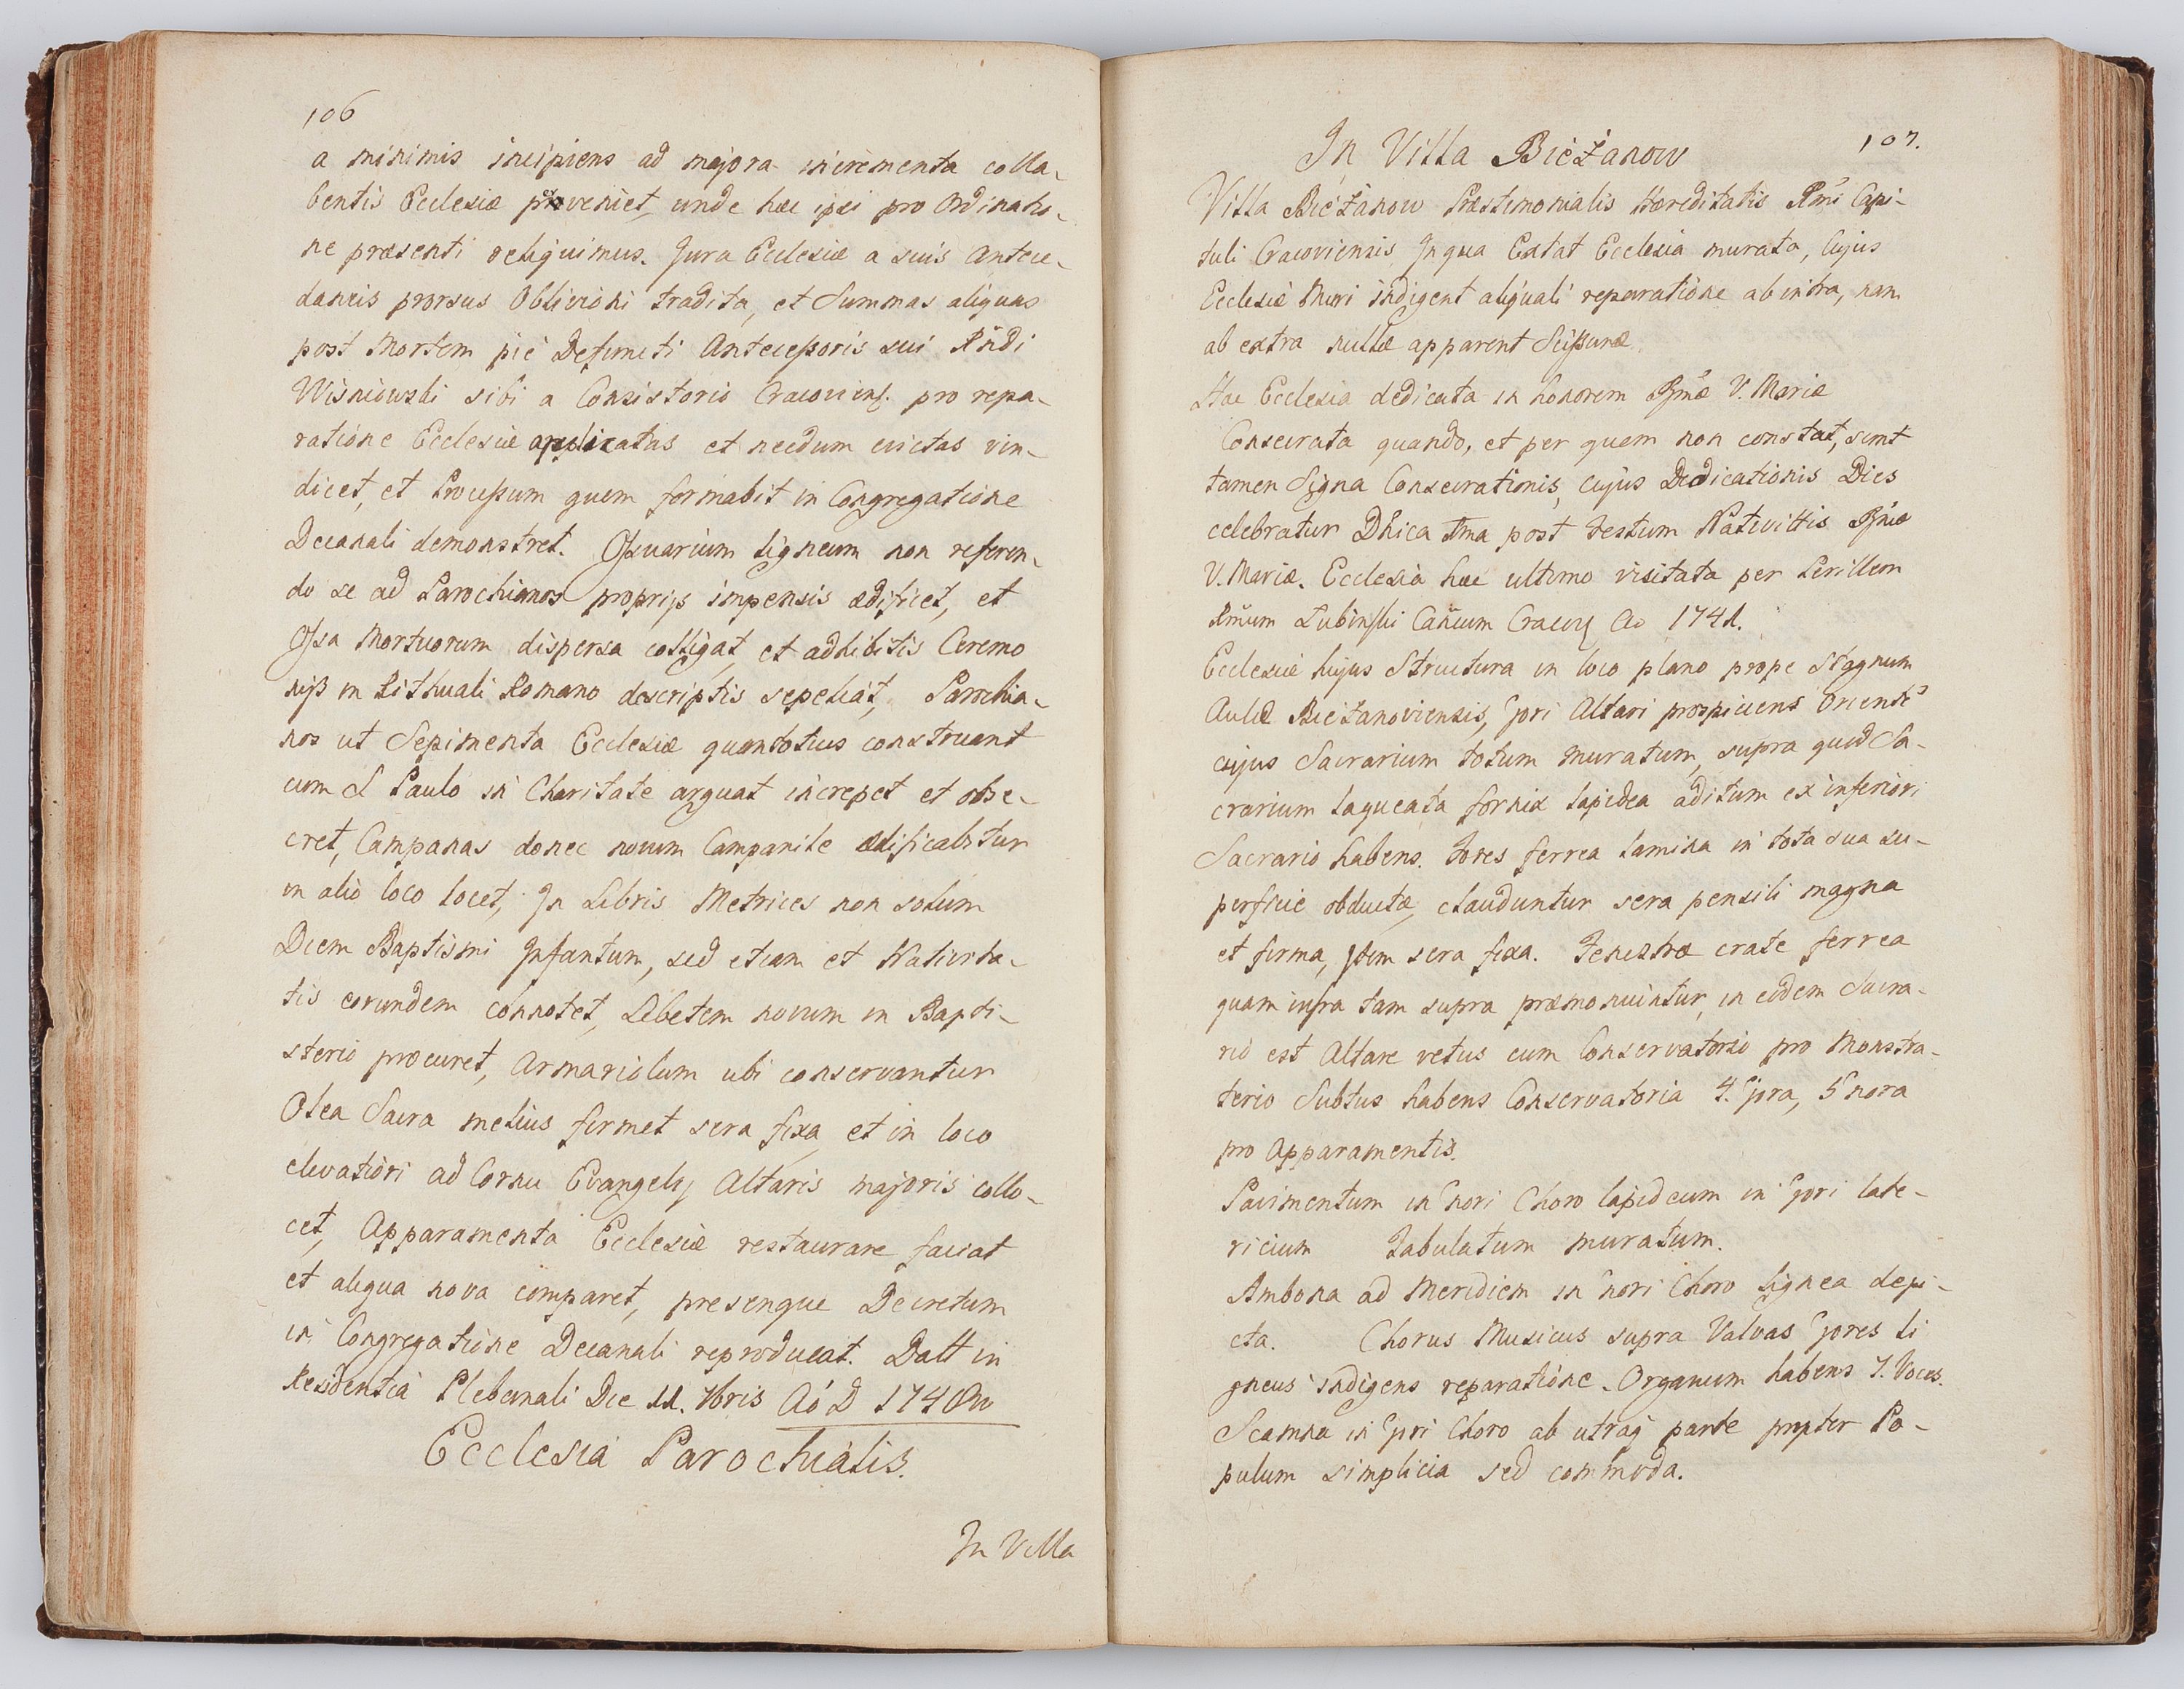 106
a minimis incipiens ad majora incrementa colla-
bentis Ecclesiæ proveniet, unde hæc ipsi pro Ordinatio-
ne præsenti reliquimus. Jura Ecclesiæ a suis Antece-
daneis prorsus Oblivioni tradita, et Summas aliquas
post Mortem pié Defuncti Antecessoris sui Rñdi
Wisniowski sibi a Consistorio Cracovien. pro repa-
ratione Ecclesiæ applicatas et necdum evictas vin-
dicet, et Processum quem formabit in Congregatione
Decanali demonstret. Ossuarium ligneum non referen-
do se ad Parochianos proprijs impensis ædificet, et
Ossa Mortuorum dispersa colligat, et adhibitis Ceremo
nijs in Rithuali Romano descriptis sepeliat, Parochia-
nos ut Sepimenta Ecclesiæ quantotius construant
cum S Paulo in Charitate arguat increpet et obse-
cret, Campanas donec novum Campanile ædificabitur
in alio loco locet, In Libris Metrices non solum
Diem Baptismi Infantum, sed etiam et Nativita-
tis eorundem connotet, Lebetem novum in Bapti-
sterio procuret, Armariolum ubi conservantur
Olea Sacra melius firmet sera fixa et in loco
elevatiori ad Cornu Evangelij Altaris majoris collo-
cet, Apparamenta Ecclesiæ restaurare faciat
et aliqua nova comparet, presensque Decretum
in Congregatione Decanali reproducat. Datt in
Residentia Plebanali Die 11. 7bris Aó D 1748vo
Ecclesia Parochialis.
In Villa
107.
In Villa Bieżanow
Villa Bieżanow Præstimonialis Hæreditatis Rmi Capi-
tuli Cracoviensis In qua Extat Ecclesia murata, Cujus
Ecclesiæ Muri indigent aliquali reparatione ab intra, nam
ab extra nullæ apparent Scissuræ
Hæc Ecclesia dedicata in honorem Bmæ V. Mariæ
Consecrata quando, et per quem non constat, sunt
tamen Signa Consecrationis, cujus Dedicationis Dies
celebratur Dñica 1ma post Festum Nativittis Bmæ
V. Mariæ. Ecclesia hæc ultimo visitata per Perillem
Rm̃um Łubinski Cañcum Cracov Ao 1741.
Ecclesiæ hujus Structura in loco plano prope Stagnum
Aulæ Bieżanoviensis, Jori Altari prospiciens Orient
cujus Sacrarium totum muratum, supra quod Sa-
crarium laqueata fornix lapidea aditum ex inferiori
Sacrario habens. Fores ferrea lamina in tota sua su-
perficie obductæ, clauduntur sera pensili magna
et firma, Item sera fixa. Fenestræ crate ferrea
quam infra tam supra præmoniuntur, in eodem Sacra-
rio est Altare vetus cum Conservatorio pro Monstra-
torio Subtus habens Conservatoria 4. Jora, 5 nora
pro Apparamentis.
Pavimentum in nori Choro lapideum in Jori late-
ricium Tabulatum muratum.
Ambona ad Meridiem in nori Choro lignea depi-
cta. Chorus Musicus supra Valvas Jores li
gneus indigens reparatione. Organum habens 7. Voces.
Scamna in Jori Choro ab utraq parte propter Po-
pulum simplicia sed commoda.